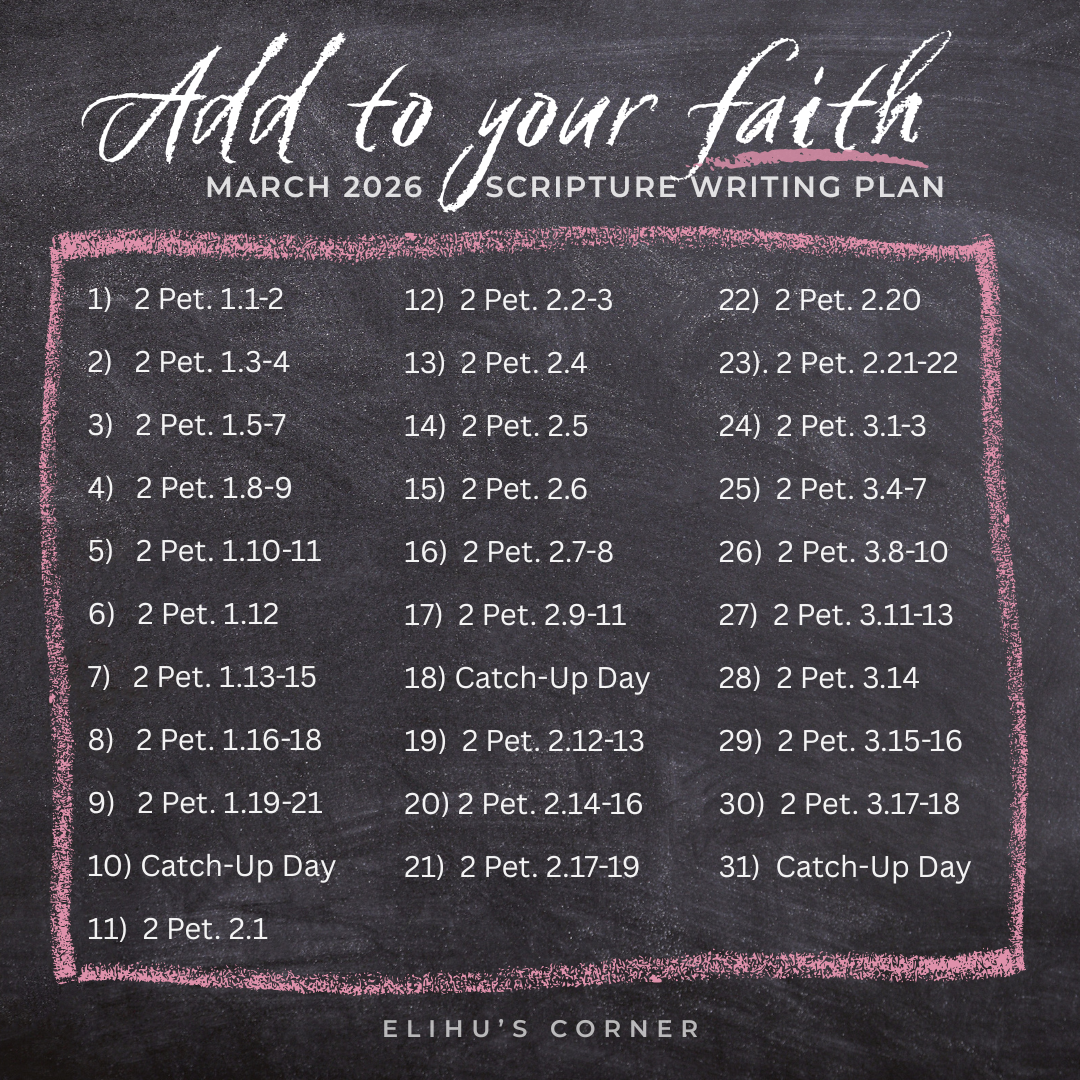 Add to your faith
MARCH 2026 SCRIPTURE WRITING PLAN
1) 2 Pet. 1.1-2
2) 2 Pet. 1.3-4
3) 2 Pet. 1.5-7
4) 2 Pet. 1.8-9
5) 2 Pet. 1.10-11
6) 2 Pet. 1.12
7) 2 Pet. 1.13-15
8) 2 Pet. 1.16-18
9) 2 Pet. 1.19-21
10) Catch-Up Day
11) 2 Pet. 2.1
12) 2 Pet. 2.2-3
13) 2 Pet. 2.4
14) 2 Pet. 2.5
15) 2 Pet. 2.6
16) 2 Pet. 2.7-8
17) 2 Pet. 2.9-11
18) Catch-Up Day
19) 2 Pet. 2.12-13
20) 2 Pet. 2.14-16
21) 2 Pet. 2.17-19
22) 2 Pet. 2.20
23). 2 Pet. 2.21-22
24) 2 Pet. 3.1-3
25) 2 Pet. 3.4-7
26) 2 Pet. 3.8-10
27) 2 Pet. 3.11-13
28) 2 Pet. 3.14
29) 2 Pet. 3.15-16
30) 2 Pet. 3.17-18
31) Catch-Up Day
ELIHU'S CORNER